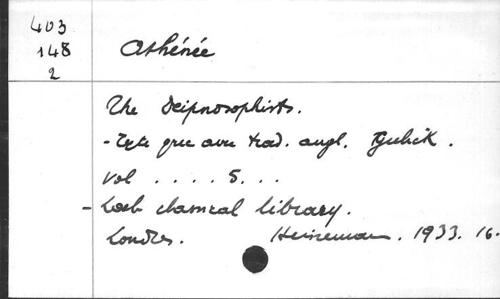 403
148
2
Athénée
The Deipnosophists.
- Texte grec avec trad. angl. Gulick.
Vol . . . . 5. . .
- Loeb classical library.
Londres. Heineman. 1933. 16.